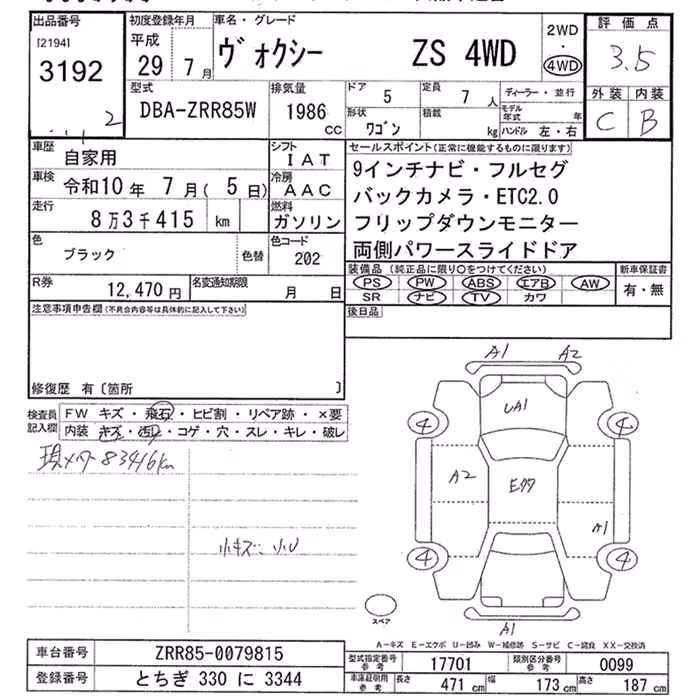 出品番号
[2194]
3192
2
初度登録年月
平成
29年 7月
車名・グレード
ヴォクシー ZS 4WD
2WD
・
4WD
評価点
3.5
外装 内装
C B
型式
DBA-ZRR85W
排気量
1986
CC
ドア 5
定員 7人
形状 ワゴン
積載 kg
ディーラー・並行
モデル年式 年
ハンドル 左・右
車歴 自家用
シフト IAT
車検 令和10年 7月( 5日)
冷房 AAC
走行 8万3千415 km
燃料 ガソリン
色 ブラック
色替
色コード 202
R券 12,470円
名変通知期限 月 日
セールスポイント(正常に機能するものに限ります)
9インチナビ・フルセグ
バックカメラ・ETC2.0
フリップダウンモニター
両側パワースライドドア
装備品(純正品に限り○をつけてください)
PS PW ABS エアB AW
SR ナビ TV カワ
新車保証書
有・無
後日品
注意事項申告欄(不具合内容等は具体的に記入して下さい)
修復歴 有〔箇所 〕
検査員記入欄
FW キズ・飛石・ヒビ割・リペア跡・×要
内装 キズ・凹・コゲ・穴・スレ・キレ・破レ
現メータ 83416km
小キズ 小U
A1 A2
UA1
4 4
A2
E77
A1
4 4
A1
スペア
A-キズ E-エクボ U-凹み W-補修跡 S-サビ C-腐食 XX-交換済
車台番号 ZRR85-0079815
登録番号 とちぎ 330 に 3344
型式指定番号 参考 17701
類別区分番号 参考 0099
車庫証明用 参考 長さ 471cm 幅 173cm 高さ 187cm